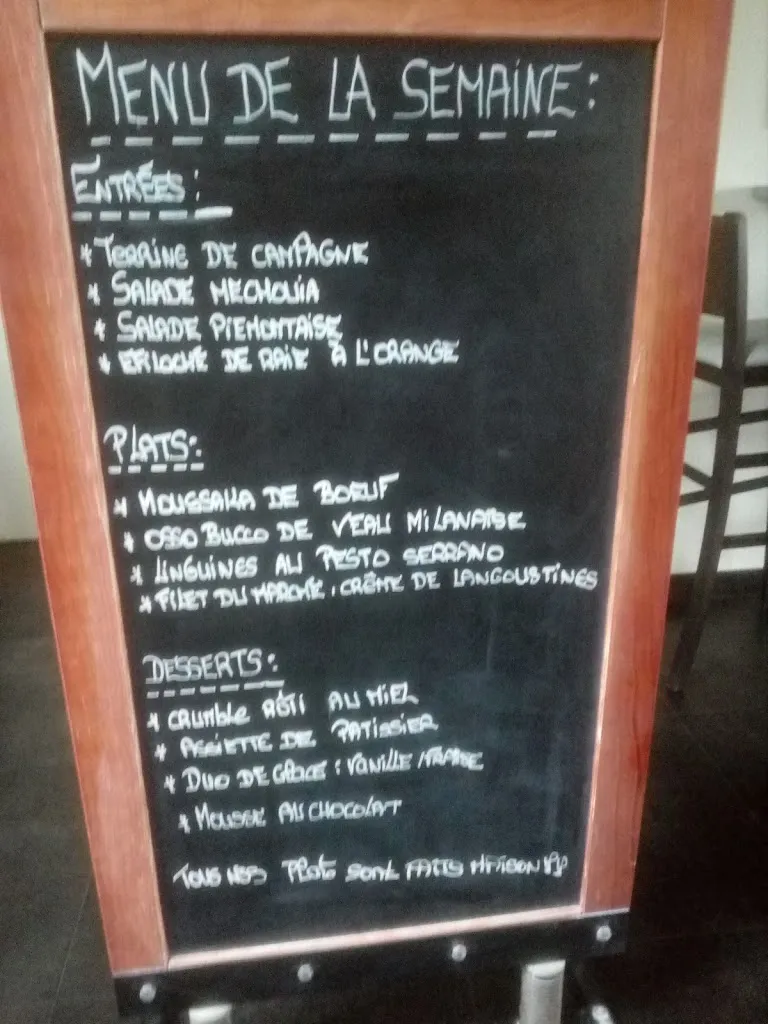 MENU DE LA SEMAINE:
ENTRÉES:
* TERRINE DE CAMPAGNE
* SALADE MECHOUIA
* SALADE PIEMONTAISE
* EFILOCHÉ DE RAIE À L'ORANGE
PLATS:
* MOUSSAKA DE BOEUF
* OSSO BUCCO DE VEAU MILANAISE
* LINGUINES AU PESTO SERRANO
* FILET DU MARCHÉ, CRÈME DE LANGOUSTINES
DESSERTS:
* CRUMBLE RÔTI AU MIEL
* ASSIETTE DE PATISSIER
* DUO DE GLACE: VANILLE/FRAISE
* MOUSSE AU CHOCOLAT
TOUS NOS PLATS SONT FAITS MAISON